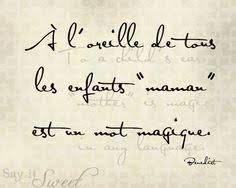 À l'oreille de tous
To a child's ear
les enfants "maman"
"mother" is magic
est un mot magique.
in any language.
Benedict
Say it
Sweet